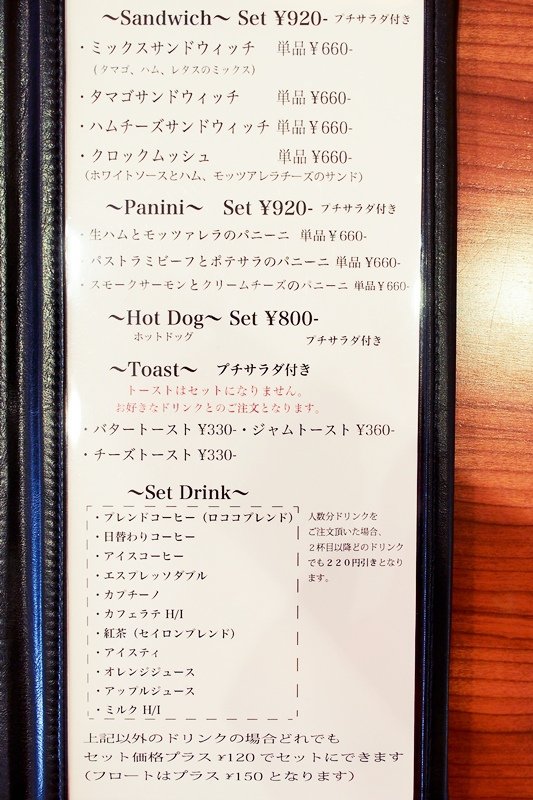 ～Sandwich～ Set ¥920- プチサラダ付き
・ミックスサンドウィッチ 単品¥660-
（タマゴ、ハム、レタスのミックス）
・タマゴサンドウィッチ 単品¥660-
・ハムチーズサンドウィッチ 単品¥660-
・クロックムッシュ 単品¥660-
（ホワイトソースとハム、モッツアレラチーズのサンド）
～Panini～ Set ¥920- プチサラダ付き
・生ハムとモッツァレラのパニーニ 単品¥660-
・パストラミビーフとポテサラのパニーニ 単品¥660-
・スモークサーモンとクリームチーズのパニーニ 単品¥660-
～Hot Dog～ Set ¥800-
ホットドッグ プチサラダ付き
～Toast～ プチサラダ付き
トーストはセットになりません。
お好きなドリンクとのご注文となります。
・バタートースト ¥330-・ジャムトースト ¥360-
・チーズトースト ¥330-
～Set Drink～
・ブレンドコーヒー（ロココブレンド）
・日替わりコーヒー
・アイスコーヒー
・エスプレッソダブル
・カプチーノ
・カフェラテ H/I
・紅茶（セイロンブレンド）
・アイスティ
・オレンジジュース
・アップルジュース
・ミルク H/I
人数分ドリンクを
ご注文頂いた場合、
２杯目以降どのドリンク
でも２２０円引きとなり
ます。
上記以外のドリンクの場合どれでも
セット価格プラス ¥120 でセットにできます
（フロートはプラス ¥150 となります）